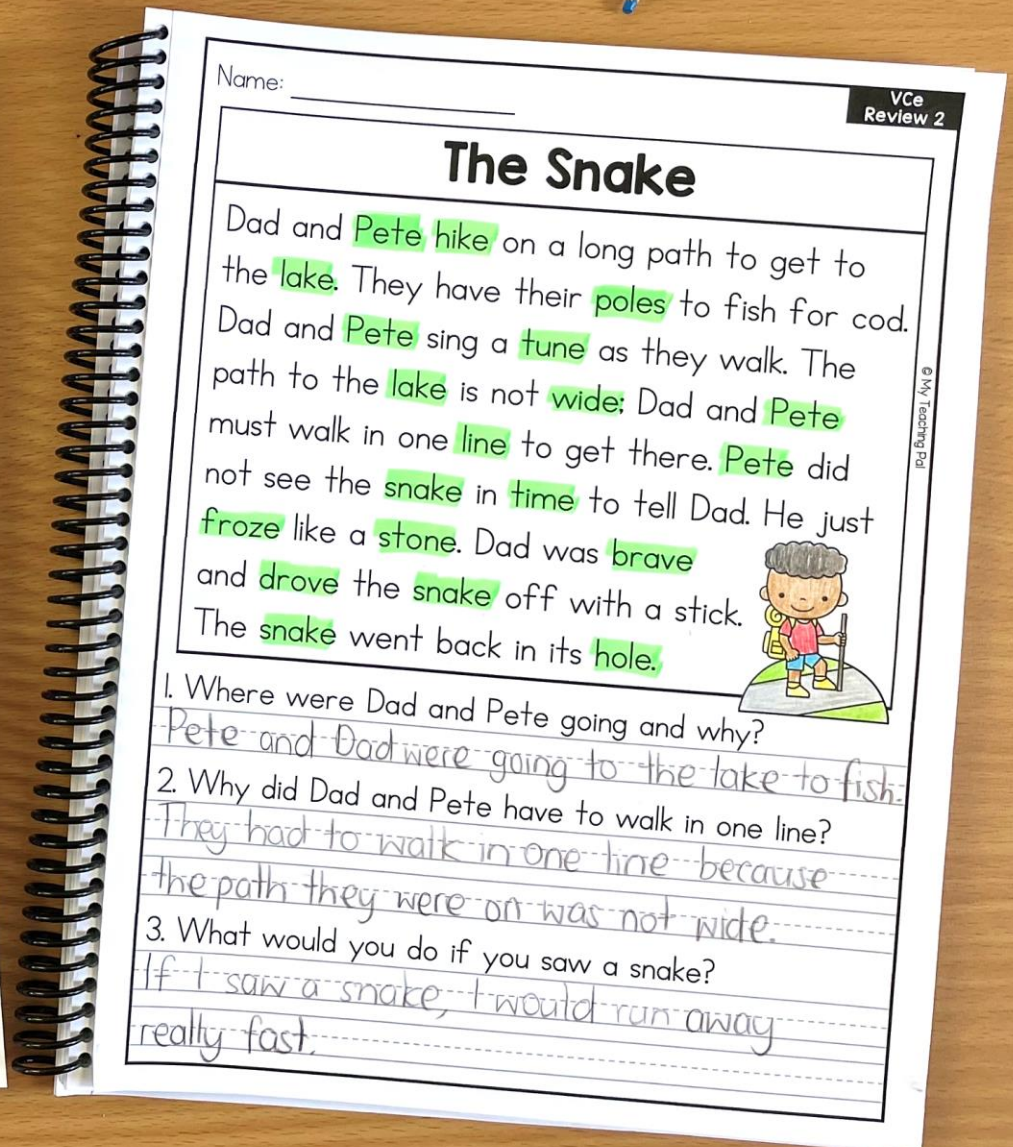 Name:
VCe
Review 2
The Snake
Dad and Pete hike on a long path to get to
the lake. They have their poles to fish for cod.
Dad and Pete sing a tune as they walk. The
path to the lake is not wide; Dad and Pete
must walk in one line to get there. Pete did
not see the snake in time to tell Dad. He just
froze like a stone. Dad was brave
and drove the snake off with a stick.
The snake went back in its hole.
© My Teaching Pal
1. Where were Dad and Pete going and why?
Pete and Dad were going to the lake to fish.
2. Why did Dad and Pete have to walk in one line?
They had to walk in one line because
the path they were on was not wide.
3. What would you do if you saw a snake?
If I saw a snake, I would run away
really fast.